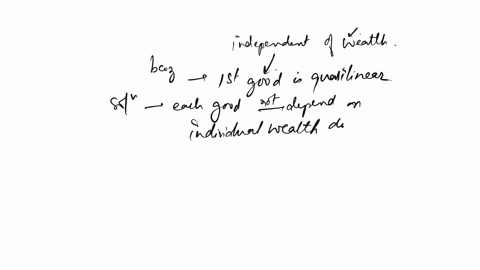 independent of wealth.
bcoz → 1st good is quasilinear.
Solⁿ → each good not depend on
individual wealth de